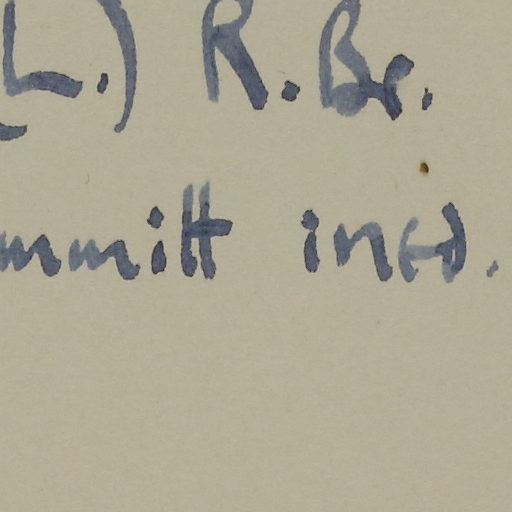 L.) R. Br.
mmitt ined.